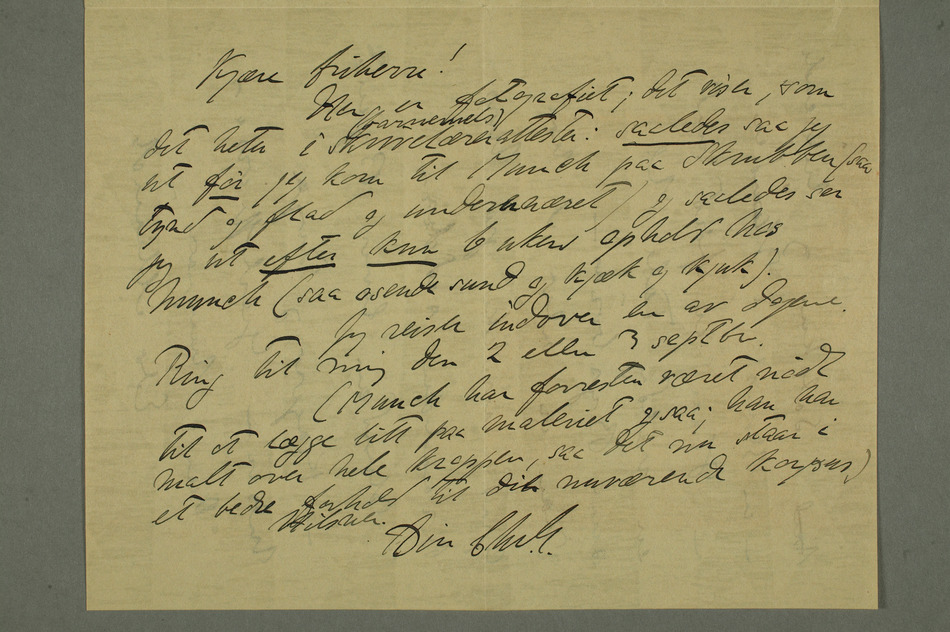 Kjære friherre!
Her er fotografiet; det viser, som
(barnemels)
det heter i skrivelærerattester: saaledes saa jeg
ut før jeg kom til Munch paa Skrubben (saa
tynd og flad og undernæret) og saaledes ser
jeg ut efter kun 6 ukers ophold hos
Munch (saa osende sund og kjæk og kjuk).
Jeg reiser indover en av dagene.
Ring til mig den 2 eller 3 septbr.
(Munch har forresten været nødt
til at lægge litt paa maleriet ogsaa; han har
malt over hele kroppen, saa det nu staar i
et bedre forhold til din nuværende korpus)
Hilsen.
Din